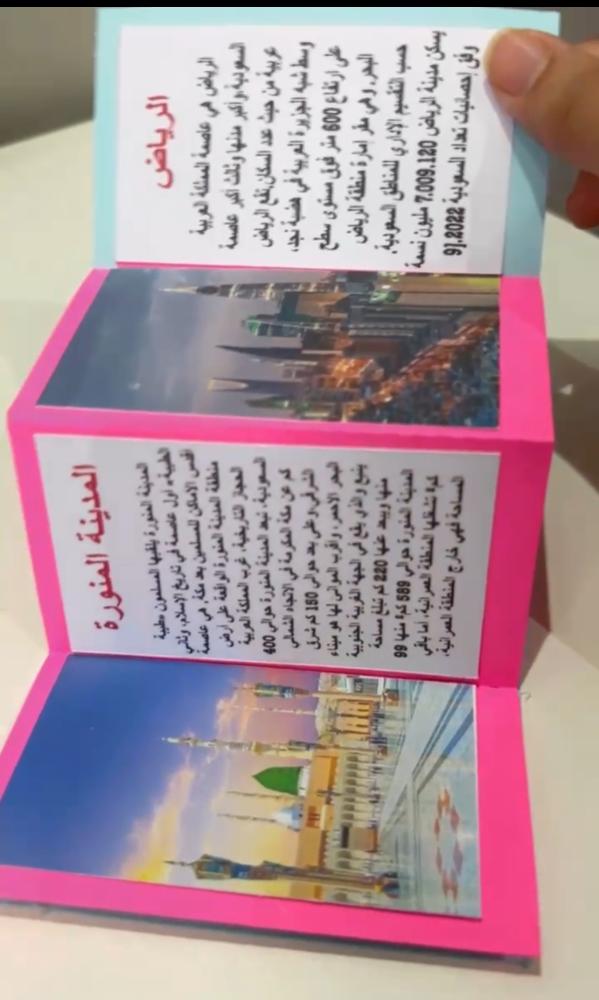 الرياض
الرياض هي عاصمة المملكة العربية
السعودية وأكبر مدنها وثالث أكبر عاصمة
عربية من حيث عدد السكان، تقع الرياض
وسط شبه الجزيرة العربية في هضبة نجد،
على ارتفاع 600 متر فوق مستوى سطح
البحر، وهي مقر إمارة منطقة الرياض
حسب التقسيم الإداري للمناطق السعودية.
يسكن مدينة الرياض 7.009.120 مليون نسمة
وفق إحصائيات تعداد السعودية 2022.[9
المدينة المنورة
المدينة المنورة يلقبها المسلمون «طيبة
الطيبة» أول عاصمة في تاريخ الإسلام، وثاني
أقدس الأماكن للمسلمين بعد مكة. هي عاصمة
منطقة المدينة المنورة الواقعة على أرض
الحجاز التاريخية، غرب المملكة العربية
السعودية، تبعد المدينة المنورة حوالي 400
كم عن مكة المكرمة في الاتجاه الشمالي
الشرقي، وعلى بعد حوالي 150 كم شرق
البحر الأحمر، وأقرب الموانئ لها هو ميناء
ينبع والذي يقع في الجهة الغربية الجنوبية
منها ويبعد عنها 220 كم تبلغ مساحة
المدينة المنورة حوالي 589 كم² منها 99
كم² تشغلها المنطقة العمرانية، أما باقي
المساحة فهي خارج المنطقة العمرانية،